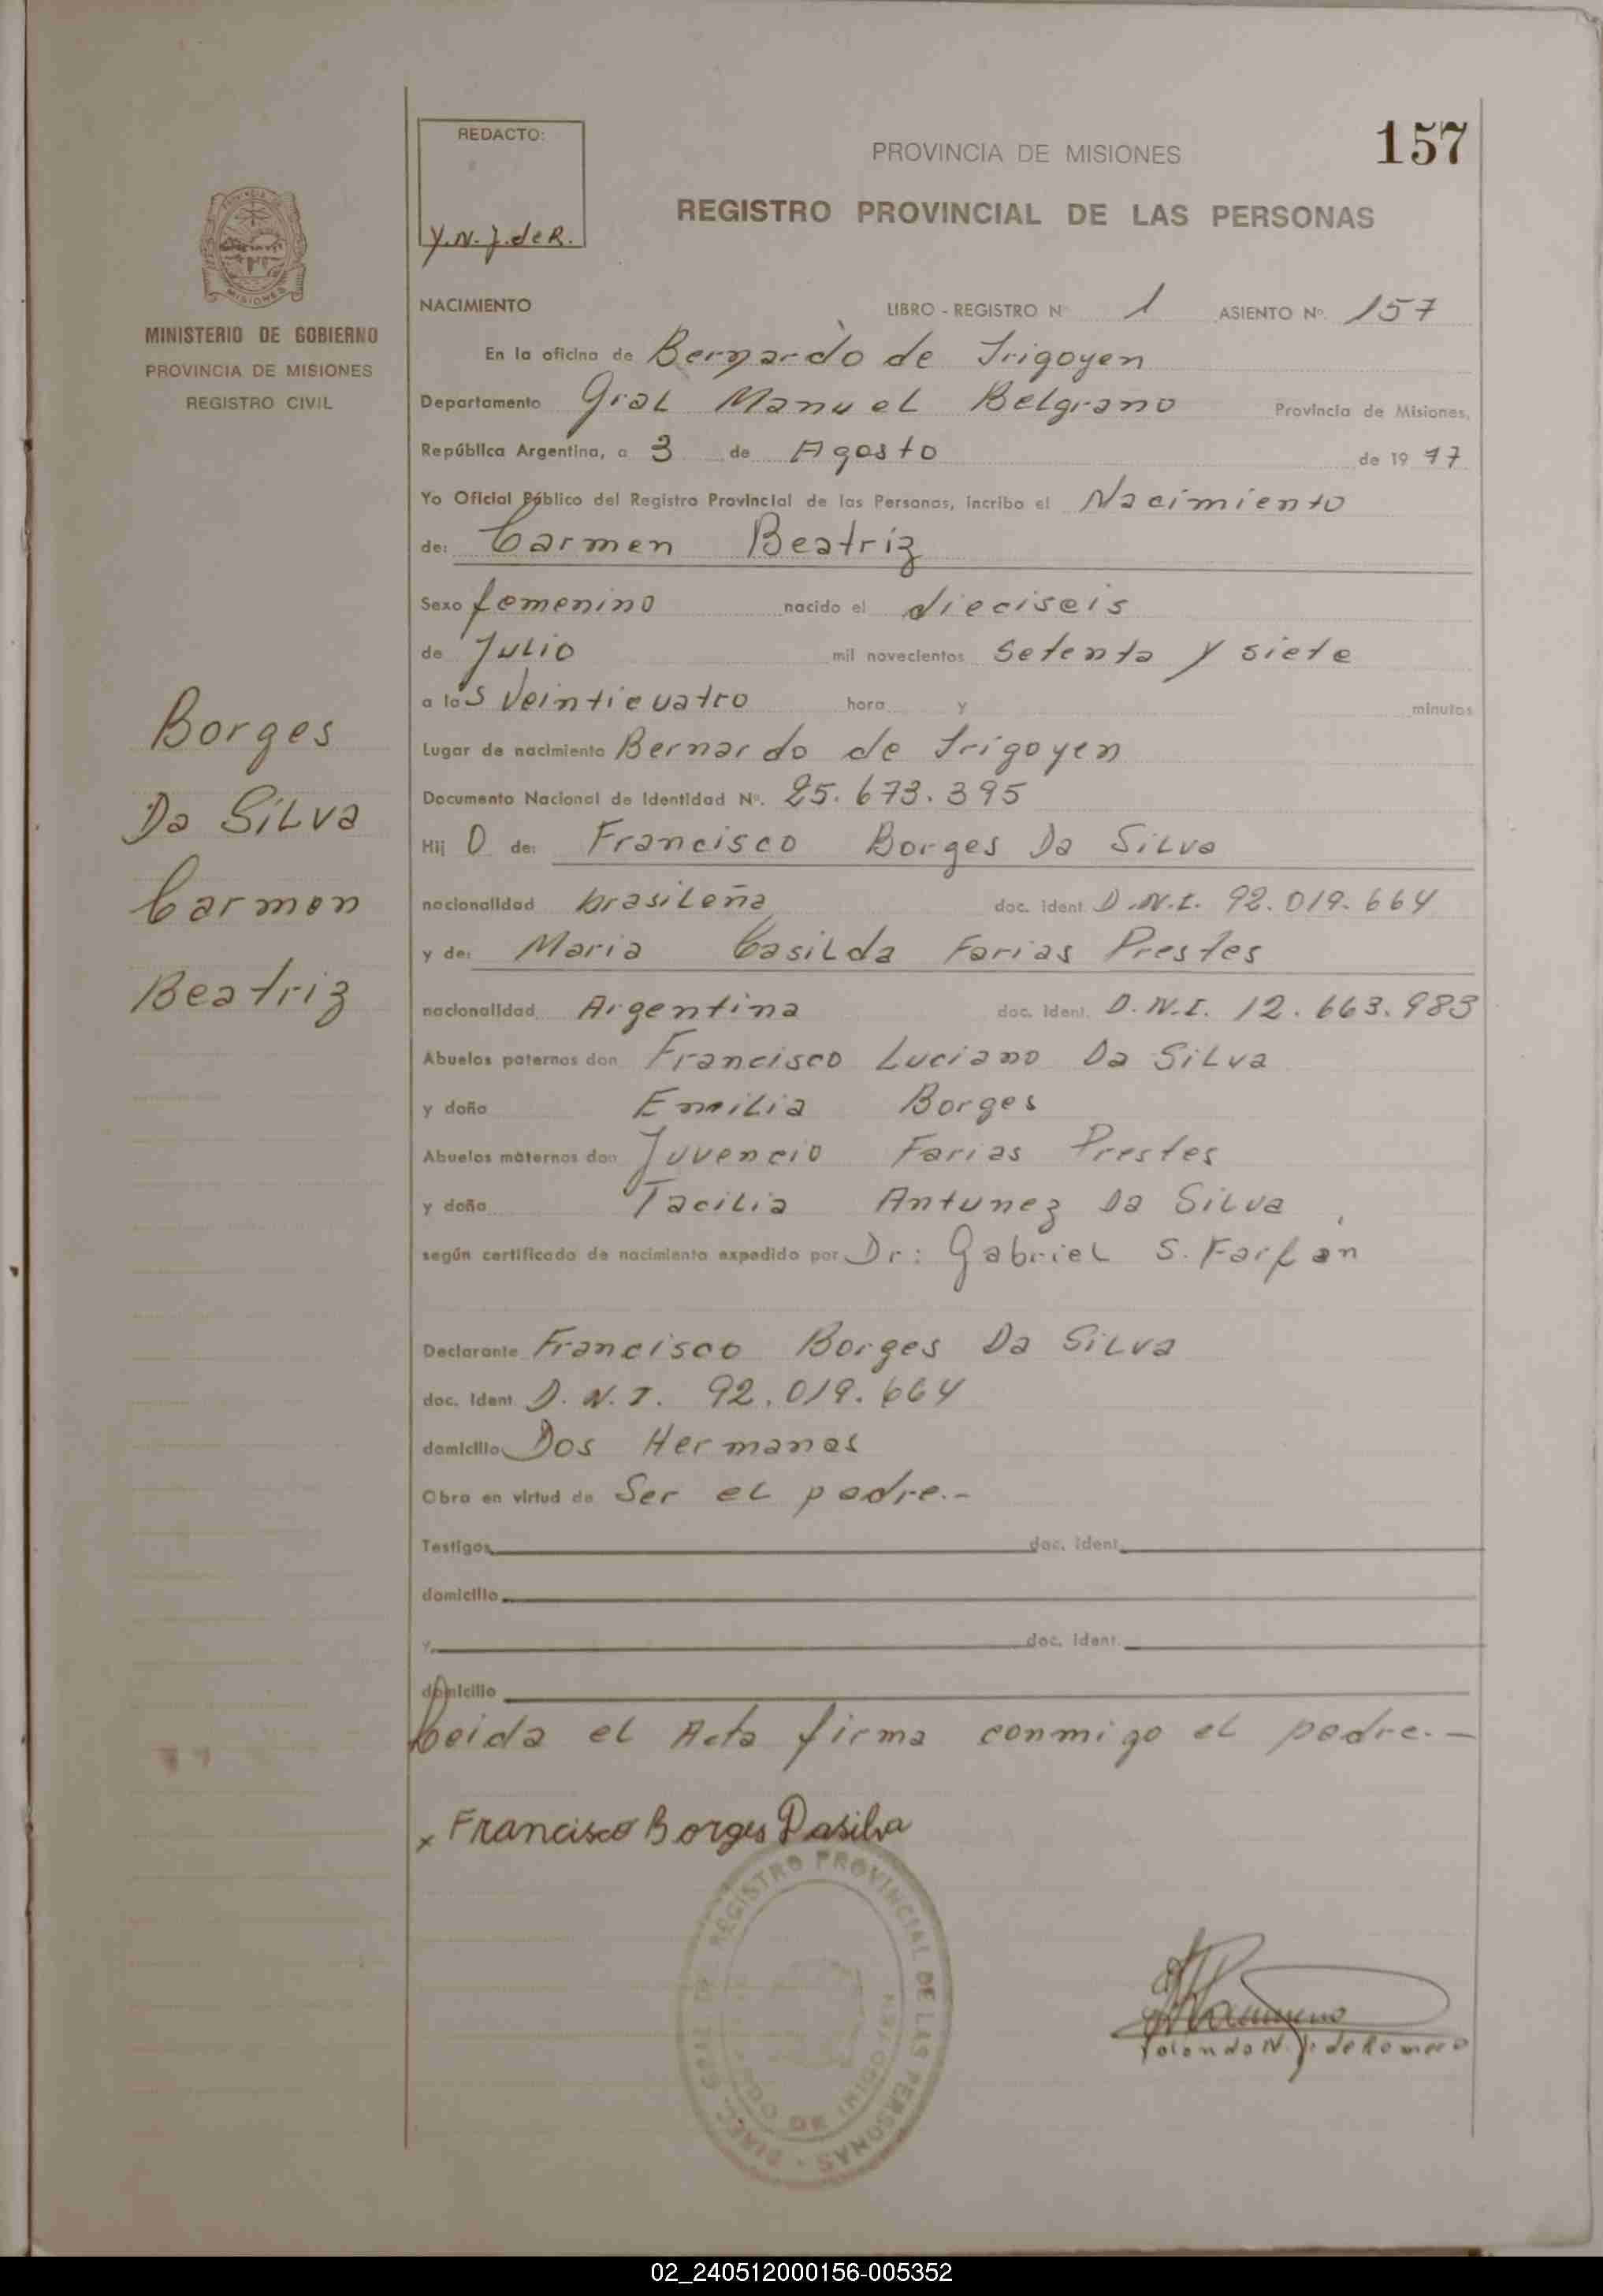 REDACTO:
Y.N.J.deR.
PROVINCIA DE MISIONES
157
REGISTRO PROVINCIAL DE LAS PERSONAS
MISIONES
MINISTERIO DE GOBIERNO
PROVINCIA DE MISIONES
REGISTRO CIVIL
NACIMIENTO LIBRO - REGISTRO Nº 1 ASIENTO Nº. 157
En la oficina de Bernardo de Irigoyen
Departamento Gral Manuel Belgrano Provincia de Misiones,
República Argentina, a 3 de Agosto de 19 77
Yo Oficial Público del Registro Provincial de las Personas, incribo el Nacimiento
de: Carmen Beatriz
Sexo femenino nacido el dieciseis
de Julio mil novecientos setenta y siete
a las veinticuatro hora y minutos
Lugar de nacimiento Bernardo de Irigoyen
Documento Nacional de Identidad Nº. 25.673.395
Hij a de: Francisco Borges Da Silva
nacionalidad brasileña doc. ident. D.N.I. 92.019.664
y de: Maria Casilda Farias Prestes
nacionalidad Argentina doc. ident. D.N.I. 12.663.983
Abuelos paternos don Francisco Luciano Da Silva
y doña Emilia Borges
Abuelos maternos don Juvencio Farias Prestes
y doña Tacilia Antunez Da Silva,
según certificado de nacimiento expedido por Dr: Gabriel S. Farfan
Declarante Francisco Borges Da Silva
doc. Ident. D.N.I. 92.019.664
domicilio Dos Hermanas
Obra en virtud de Ser el padre.-
Testigos doc. ident.
domicilio
y doc. ident.
domicilio
Leida el Acta firma conmigo el padre.-
x Francisco Borges Dasilva
Borges
Da Silva
Carmen
Beatriz
REGISTRO PROVINCIAL DE LAS PERSONAS
Yolanda N. J. de Romero
02_240512000156-005352